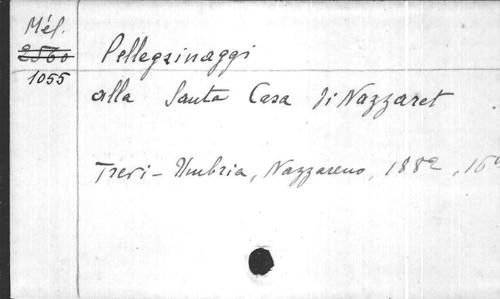 Mél.
2560
1055
Pellegrinaggi
alla Santa Casa di Nazzaret
Trevi - Umbria, Nazzareno, 1882, 16°